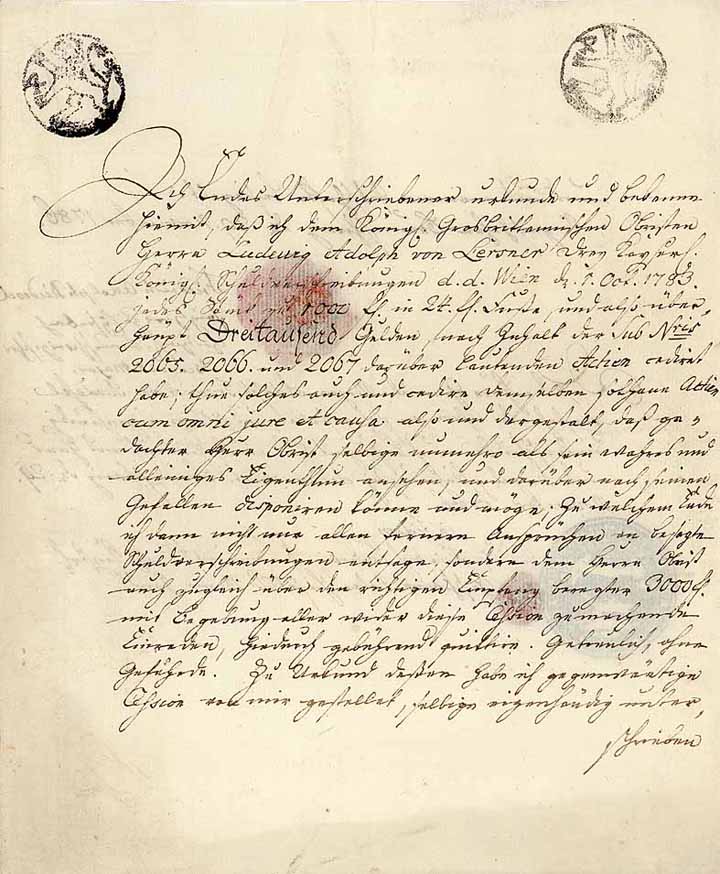 Ich Endes Unterschriebener urkunde und bekenne
hiemit, daß ich dem Königl. Grosbrittannischen Obristen
Herrn Ludewig Adolph von Lersner drey Kayserl.
Königl. Schuldverschreibungen d. d. Wien d. 1. Oct. 1783.
jedes Stück zu 1000 fl in 24. fl. Fuße, und also über,,
haupt Dreitausend Gulden nach Inhalt der sub Nris
2065. 2066. und 2067 darüber lautenden Actien cediret
habe; thue solches auch und cedire demselben solthane Actien
cum omni jure et causa also und dergestalt, daß ge,,
dachter Herr Obrist selbige nunmehro als sein wahres und
alleiniges Eigenthum ansehen, und darüber nach seinen
Gefallen disponiren könne und möge. Zu welchem Ende
ich dann nicht nur allen fernern Ansprüchen an besagte
Schuldverschreibungen entsage, sondern dem Herrn Obrist
auch zugleich über den richtigen Empfang beregter 3000 fl.
mit Begebung aller wider diese Cession zumachende
Einreden, hiedurch gebührend quittire. Getreulich, ohne
Gefährde. Zu Urkund deßen habe ich gegenwärtige
Cession von mir gestellet, selbige eigenhändig unter,,
schrieben